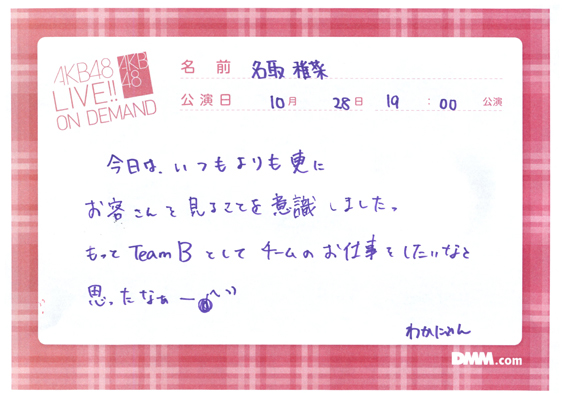 AKB48
LIVE!!
ON DEMAND
AKB
48
名前 名取 稚菜
公演日 10月 28日 19:00 公演
今日は、いつもよりも更に
お客さんを見ることを意識しました。
もっと Team B として チームのお仕事をしたいなと
思ったなぁー
わかにゃん
DMM.com